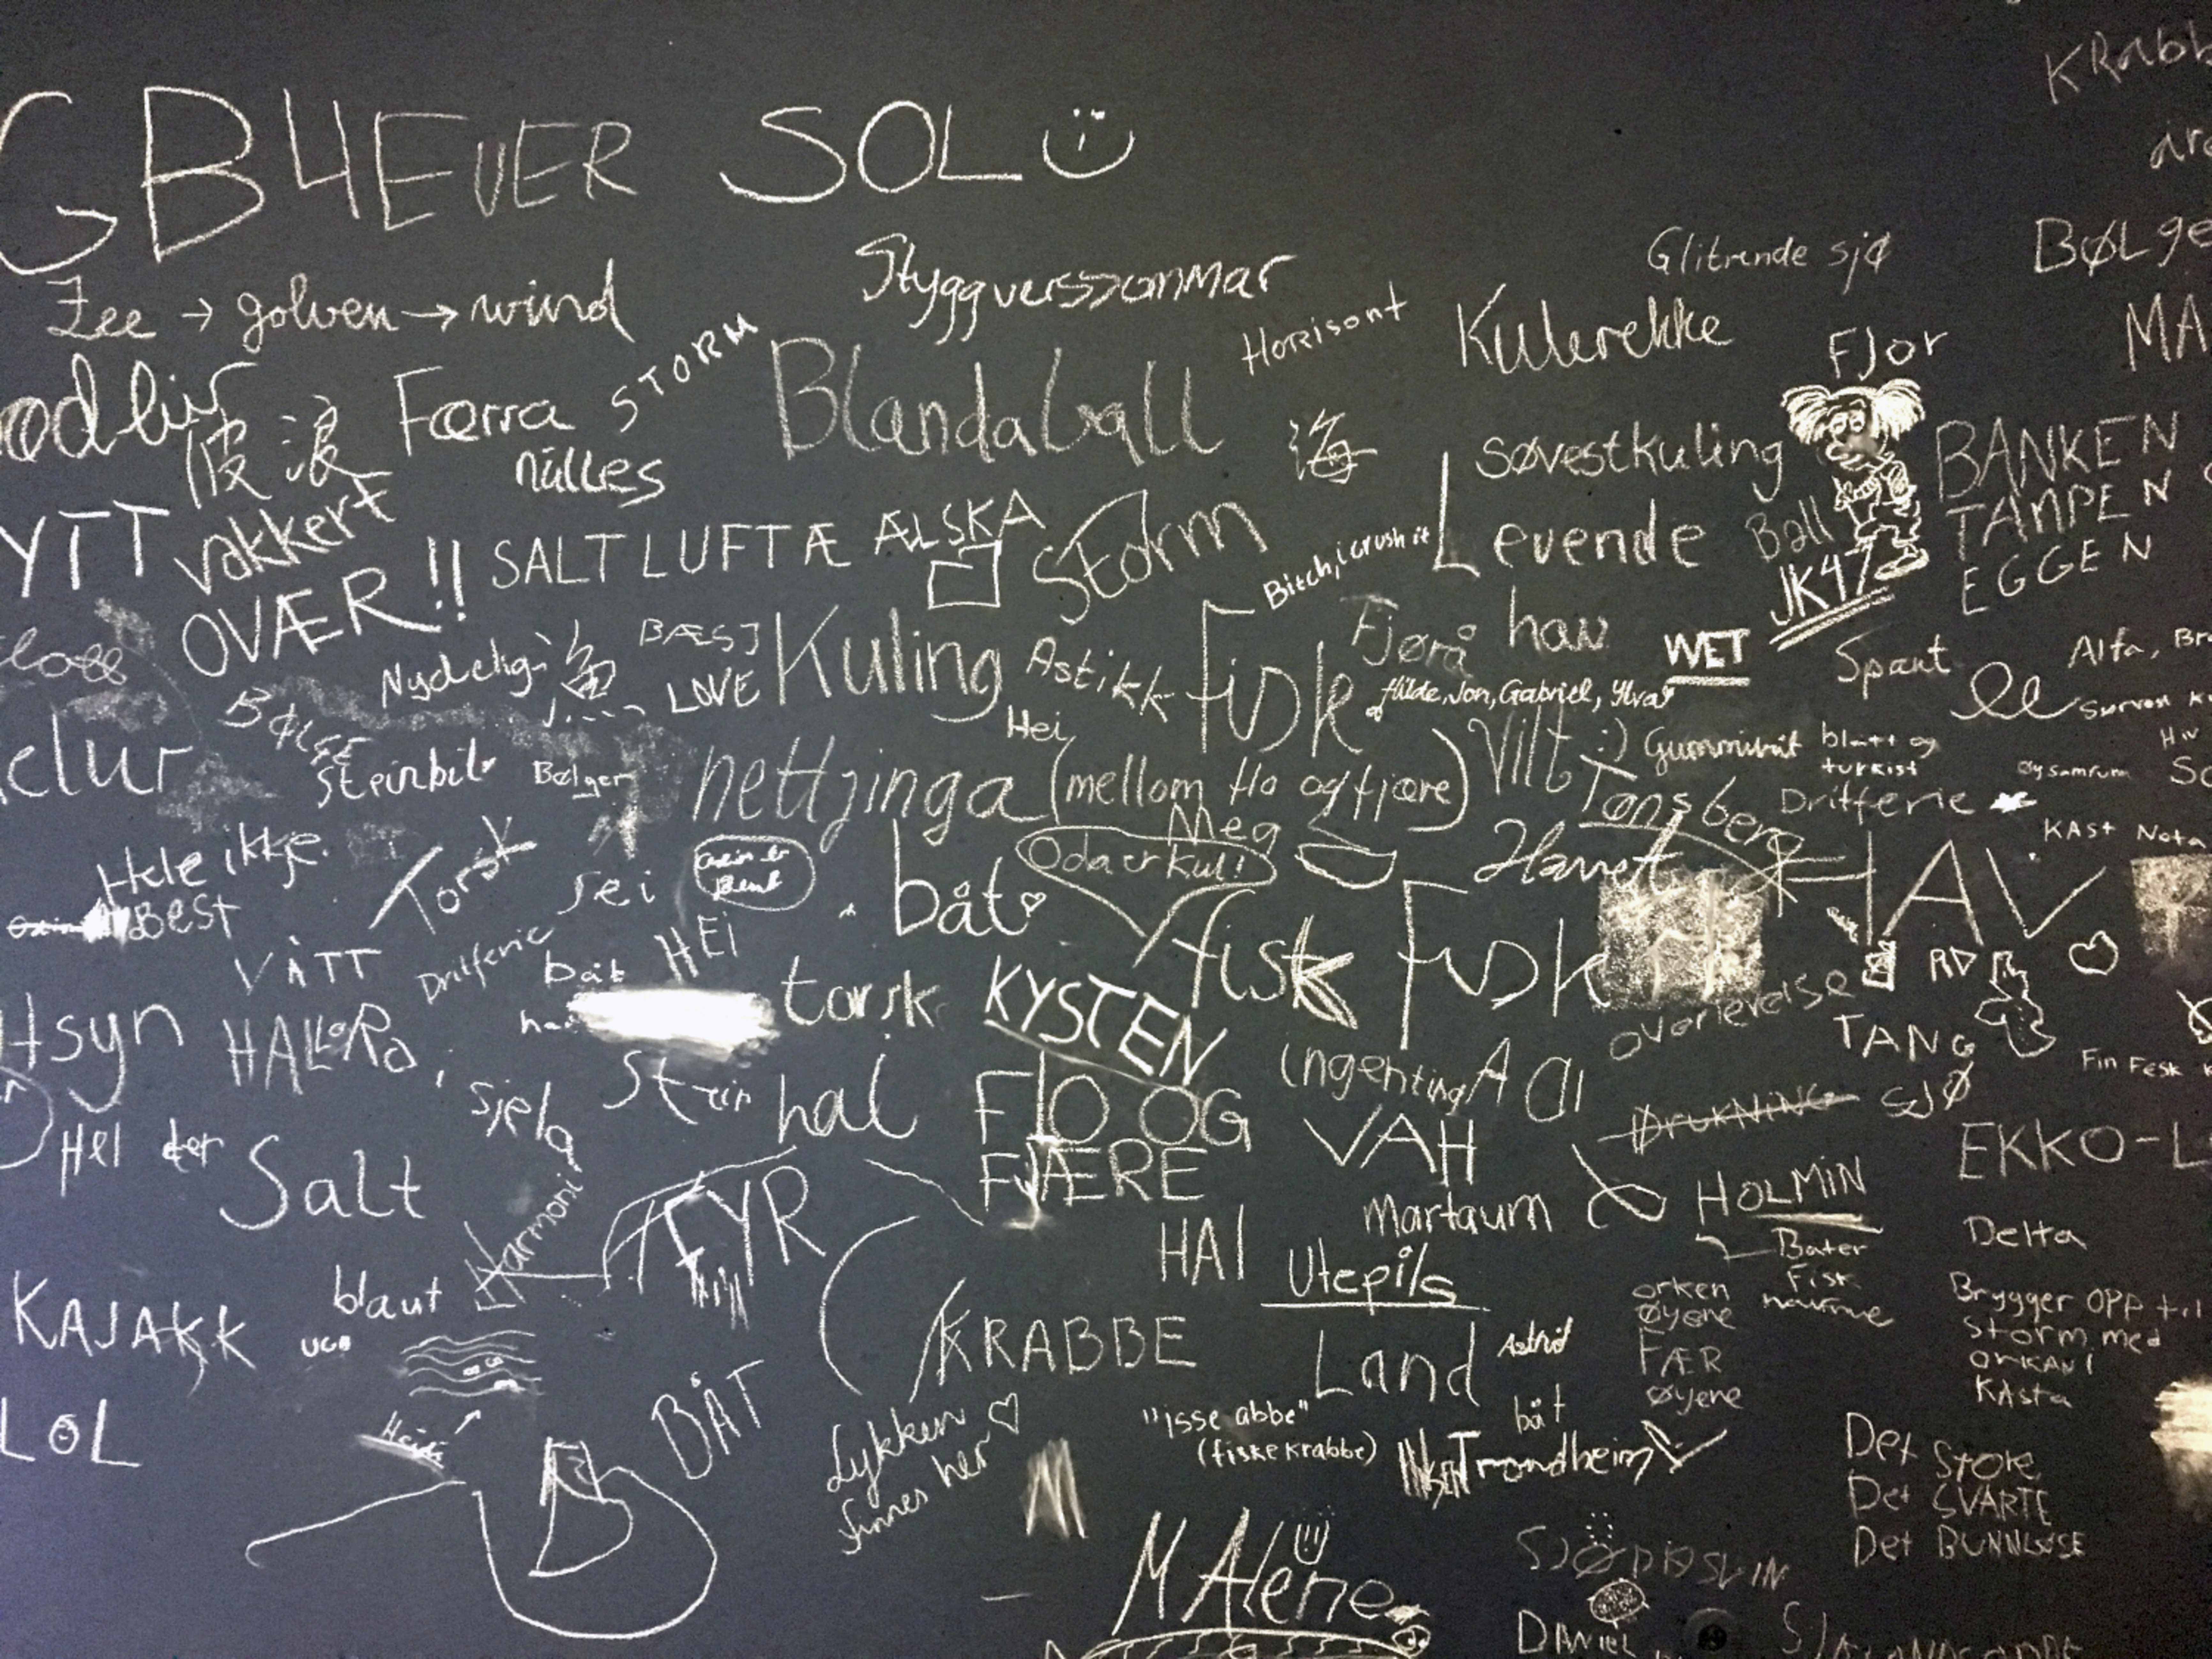 GB4EVER SOL
KRabb
Glitrende sjø
BØLge
Styggverssommar
Zee → golven → wind
Horisont
Kulerekke
MA
Fjor
STORM
Færra
Blandaball
波浪
海
nülles
Søvestkuling
BANKEN
TAMPEN
EGGEN
YTT
vakkert
OVÆR!!
SALT LUFT Æ ÆLSKA
Storm
Bitch, i crush it
Levende
hav
Ball
JK47
Fjøra
WET
BÆSJ
LOVE
Kuling
Astikk
Fisk
Spænt
Alfa, Br
Nydelig
魚
Hilde, Jon, Gabriel, Ylva
BØLGE
Hei
Steinbit
Bølger
nettjinga (mellom flo og fjære)
Vilt :)
Gummibåt
blått og
turkist
Øysamfunn
Tønsberg
Drittferie
Meg
KAst Nota
Hele ikke
BEST
Torsk
sei
båt
Oda er kul!
Havet
HAV
VÅTT
Drittferie
båt
HEI
torsk
KYSTEN
fisk
Fisk
overlevelse
TANG
RD
tsyn
HALLoRa
sjela
hai
FLO OG
FJÆRE
ingenting
VAH
DrUKNING
SJØ
Fin Fesk
EKKO-L
Hel der
Salt
Harmoni
FYR
HAI
martaum
HOLMIN
Båter
Fisk
Delta
KAJAKK
blaut
UGB
Utepils
orken
øyene
FÆR
øyene
Brygger OPP til
storm med
orkan i
KAsta
KRABBE
Land
Astrid
LOL
Heidi
BÅT
Lykken
finnes her
"isse abbe"
(fiskekrabbe)
båt
Trondheim
Det Store
Det SVARTE
Det BUNNLØSE
MAlene
SJØPISVIN
DANIEL